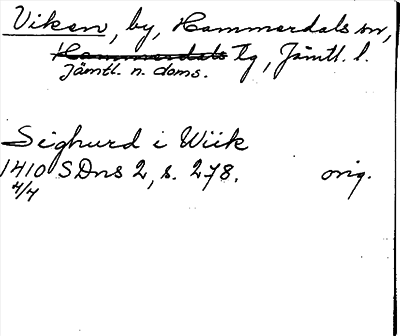 Viken, by, Hammerdals sn,
Hammerdals tg, Jämtl. l.
Jämtl. n. doms.
Sighurd i Wiik
1410 SDns 2, s. 278. orig.
4/4